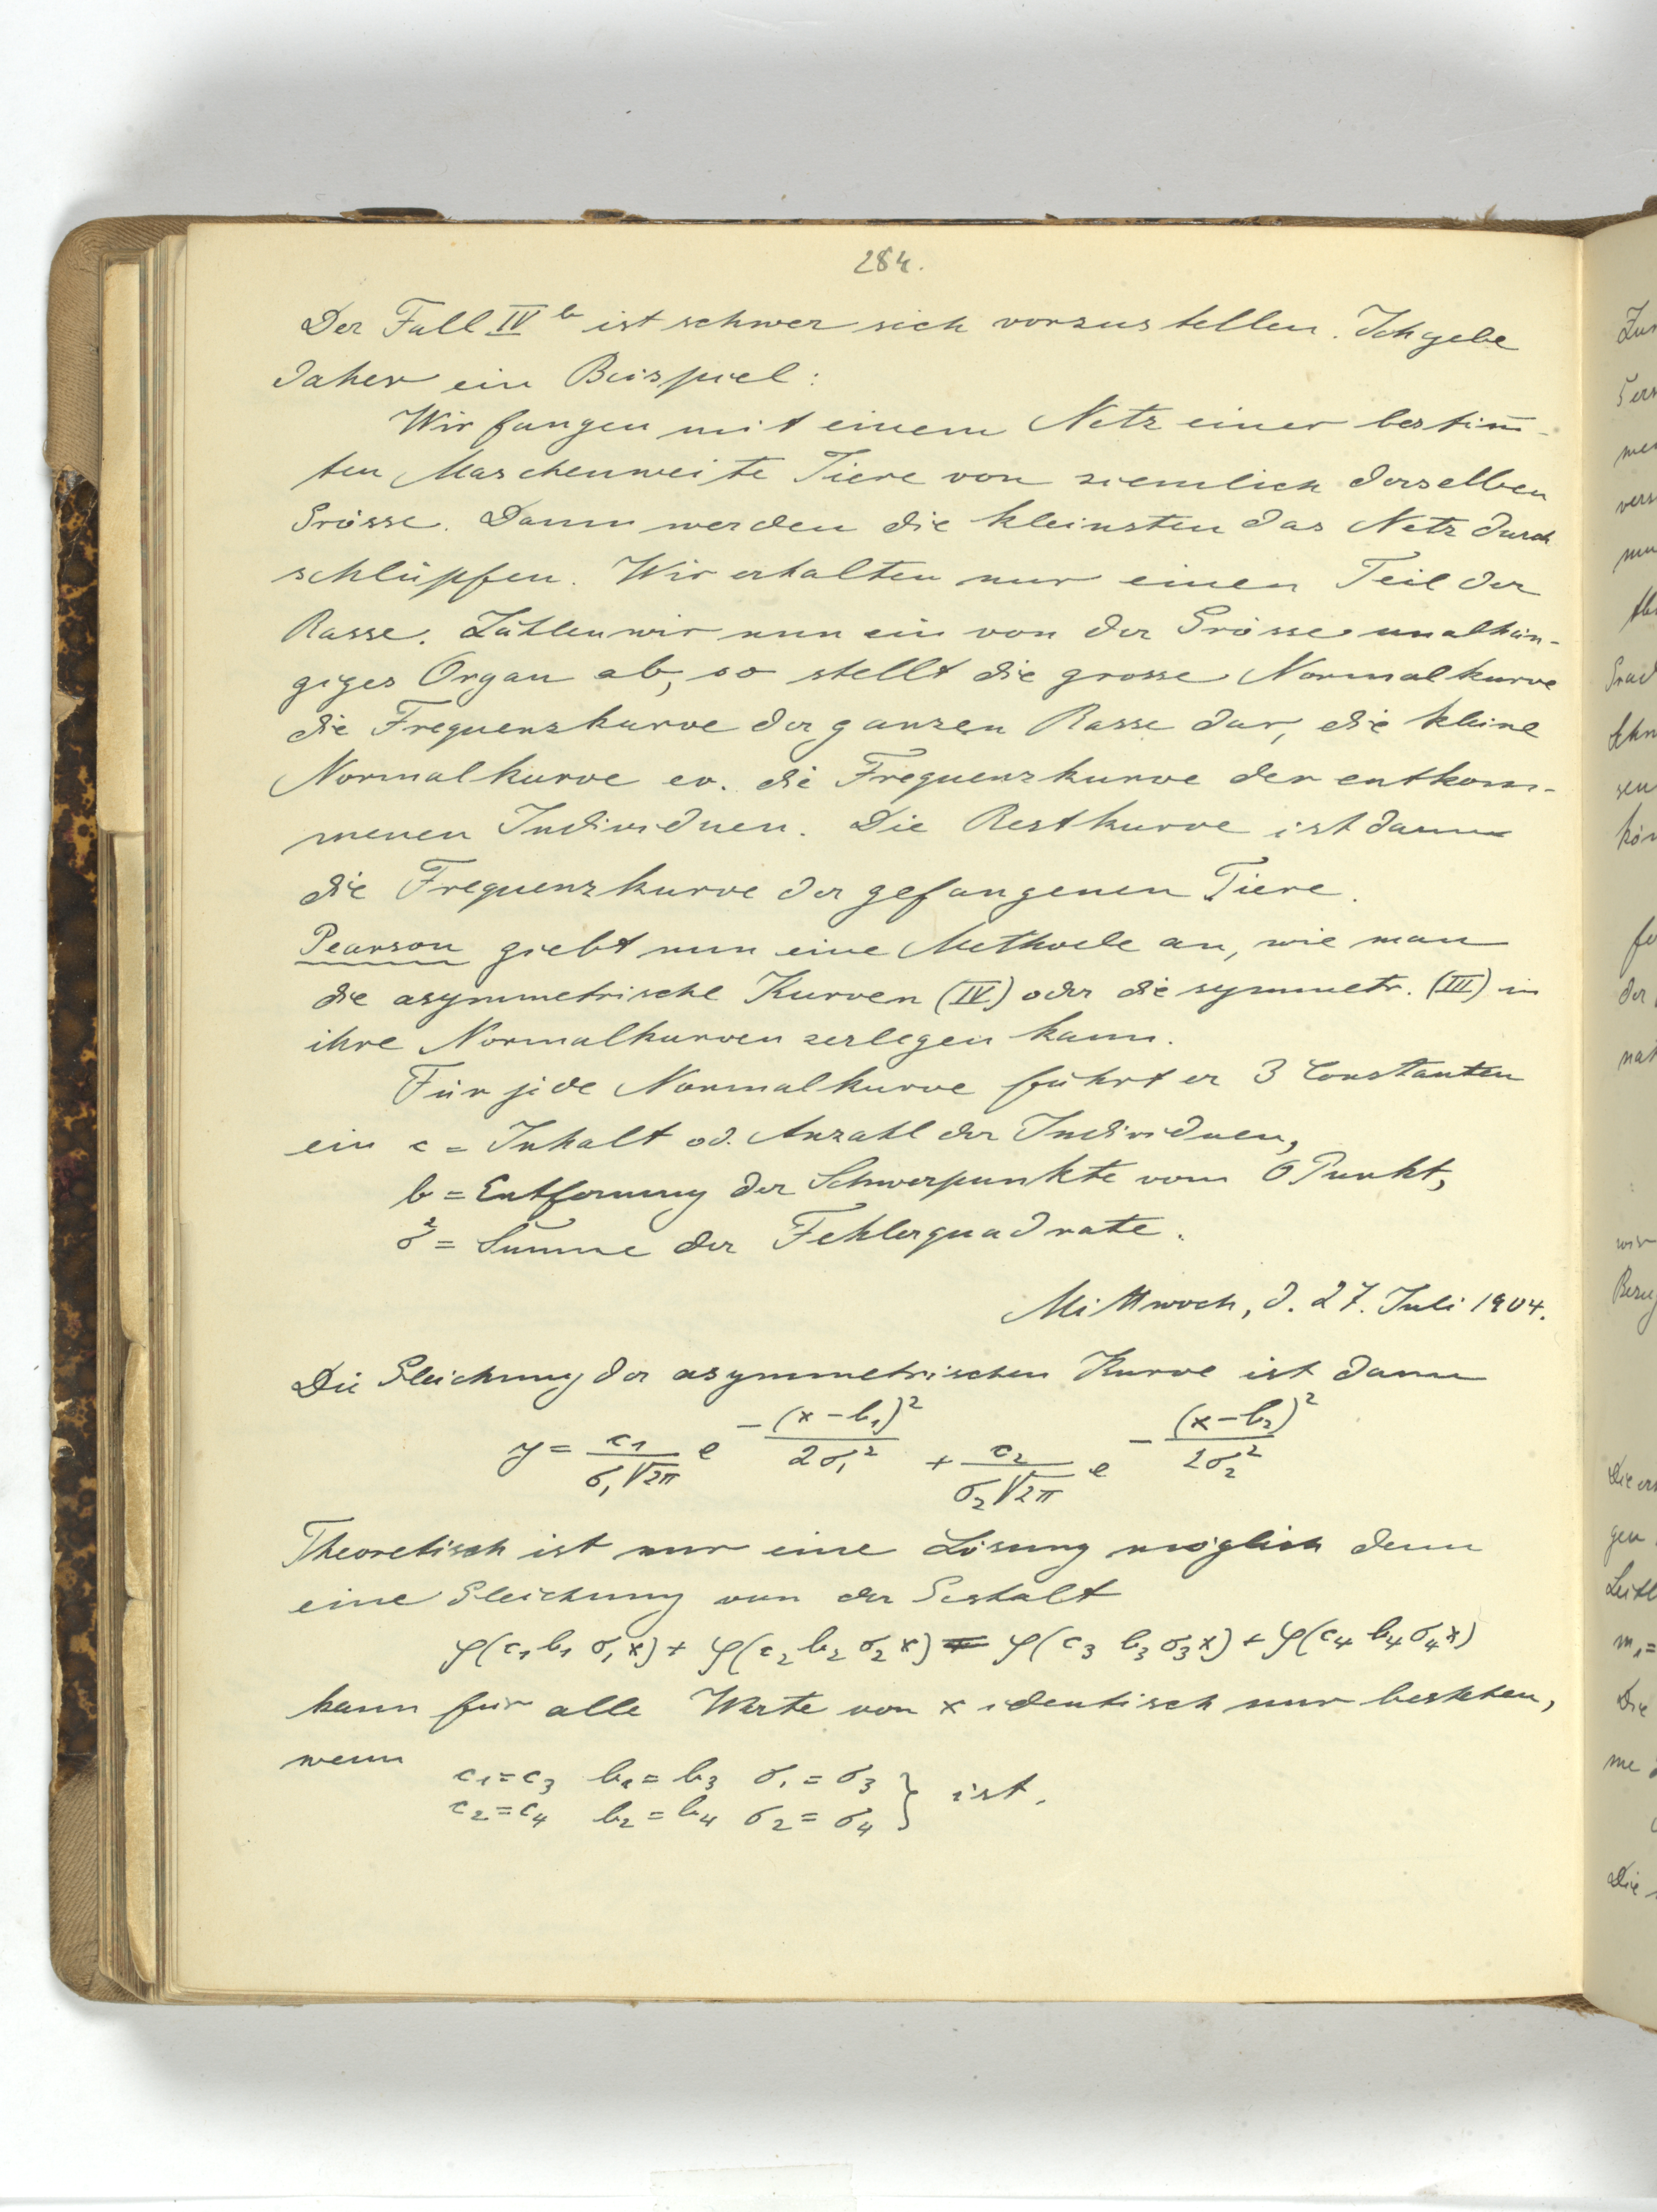 284.
Der Fall IV b ist schwer sich vorzustellen. Ich gebe
daher ein Beispiel:
Wir fangen mit einem Netz einer bestim̅-
ten Maschenweite Tiere von ziemlich derselben
Grösse. Dann werden die kleinsten das Netz durch
schlüpfen. Wir erhalten nur einen Teil der
Rasse. Zählen wir nun ein von der Grösse unabhän-
giges Organ ab, so stellt die grosse Normalkurve
die Frequenzkurve der ganzen Rasse dar, die kleine
Normalkurve ev. die Frequenzkurve der entkom-
menen Individuen. Die Restkurve ist dann
die Frequenzkurve der gefangenen Tiere.
Pearson giebt nun eine Methode an, wie man
die asymmetrische Kurven (IV) oder die symmetr. (III) in
ihre Normalkurven zerlegen kann.
Für jede Normalkurve führt er 3 Constanten
ein c = Inhalt od. Anzahl der Individuen,
b = Entfernung der Schwerpunkte vom 0 Punkt,
σ² = Summe der Fehlerquadrate.
Mittwoch, d. 27. Juli 1904.
Die Gleichung der asymmetrischen Kurve ist dann
y = c₁/(σ₁√2π) e^(-(x-b₁)²/2σ₁²) + c₂/(σ₂√2π) e^(-(x-b₂)²/2σ₂²)
Theoretisch ist nur eine Lösung möglich denn
eine Gleichung von der Gestalt
φ(c₁ b₁ σ₁ x) + φ(c₂ b₂ σ₂ x) = φ(c₃ b₃ σ₃ x) + φ(c₄ b₄ σ₄ x)
kann für alle Werte von x identisch nur bestehen,
wenn
c₁ = c₃ b₁ = b₃ σ₁ = σ₃
c₂ = c₄ b₂ = b₄ σ₂ = σ₄ } ist.